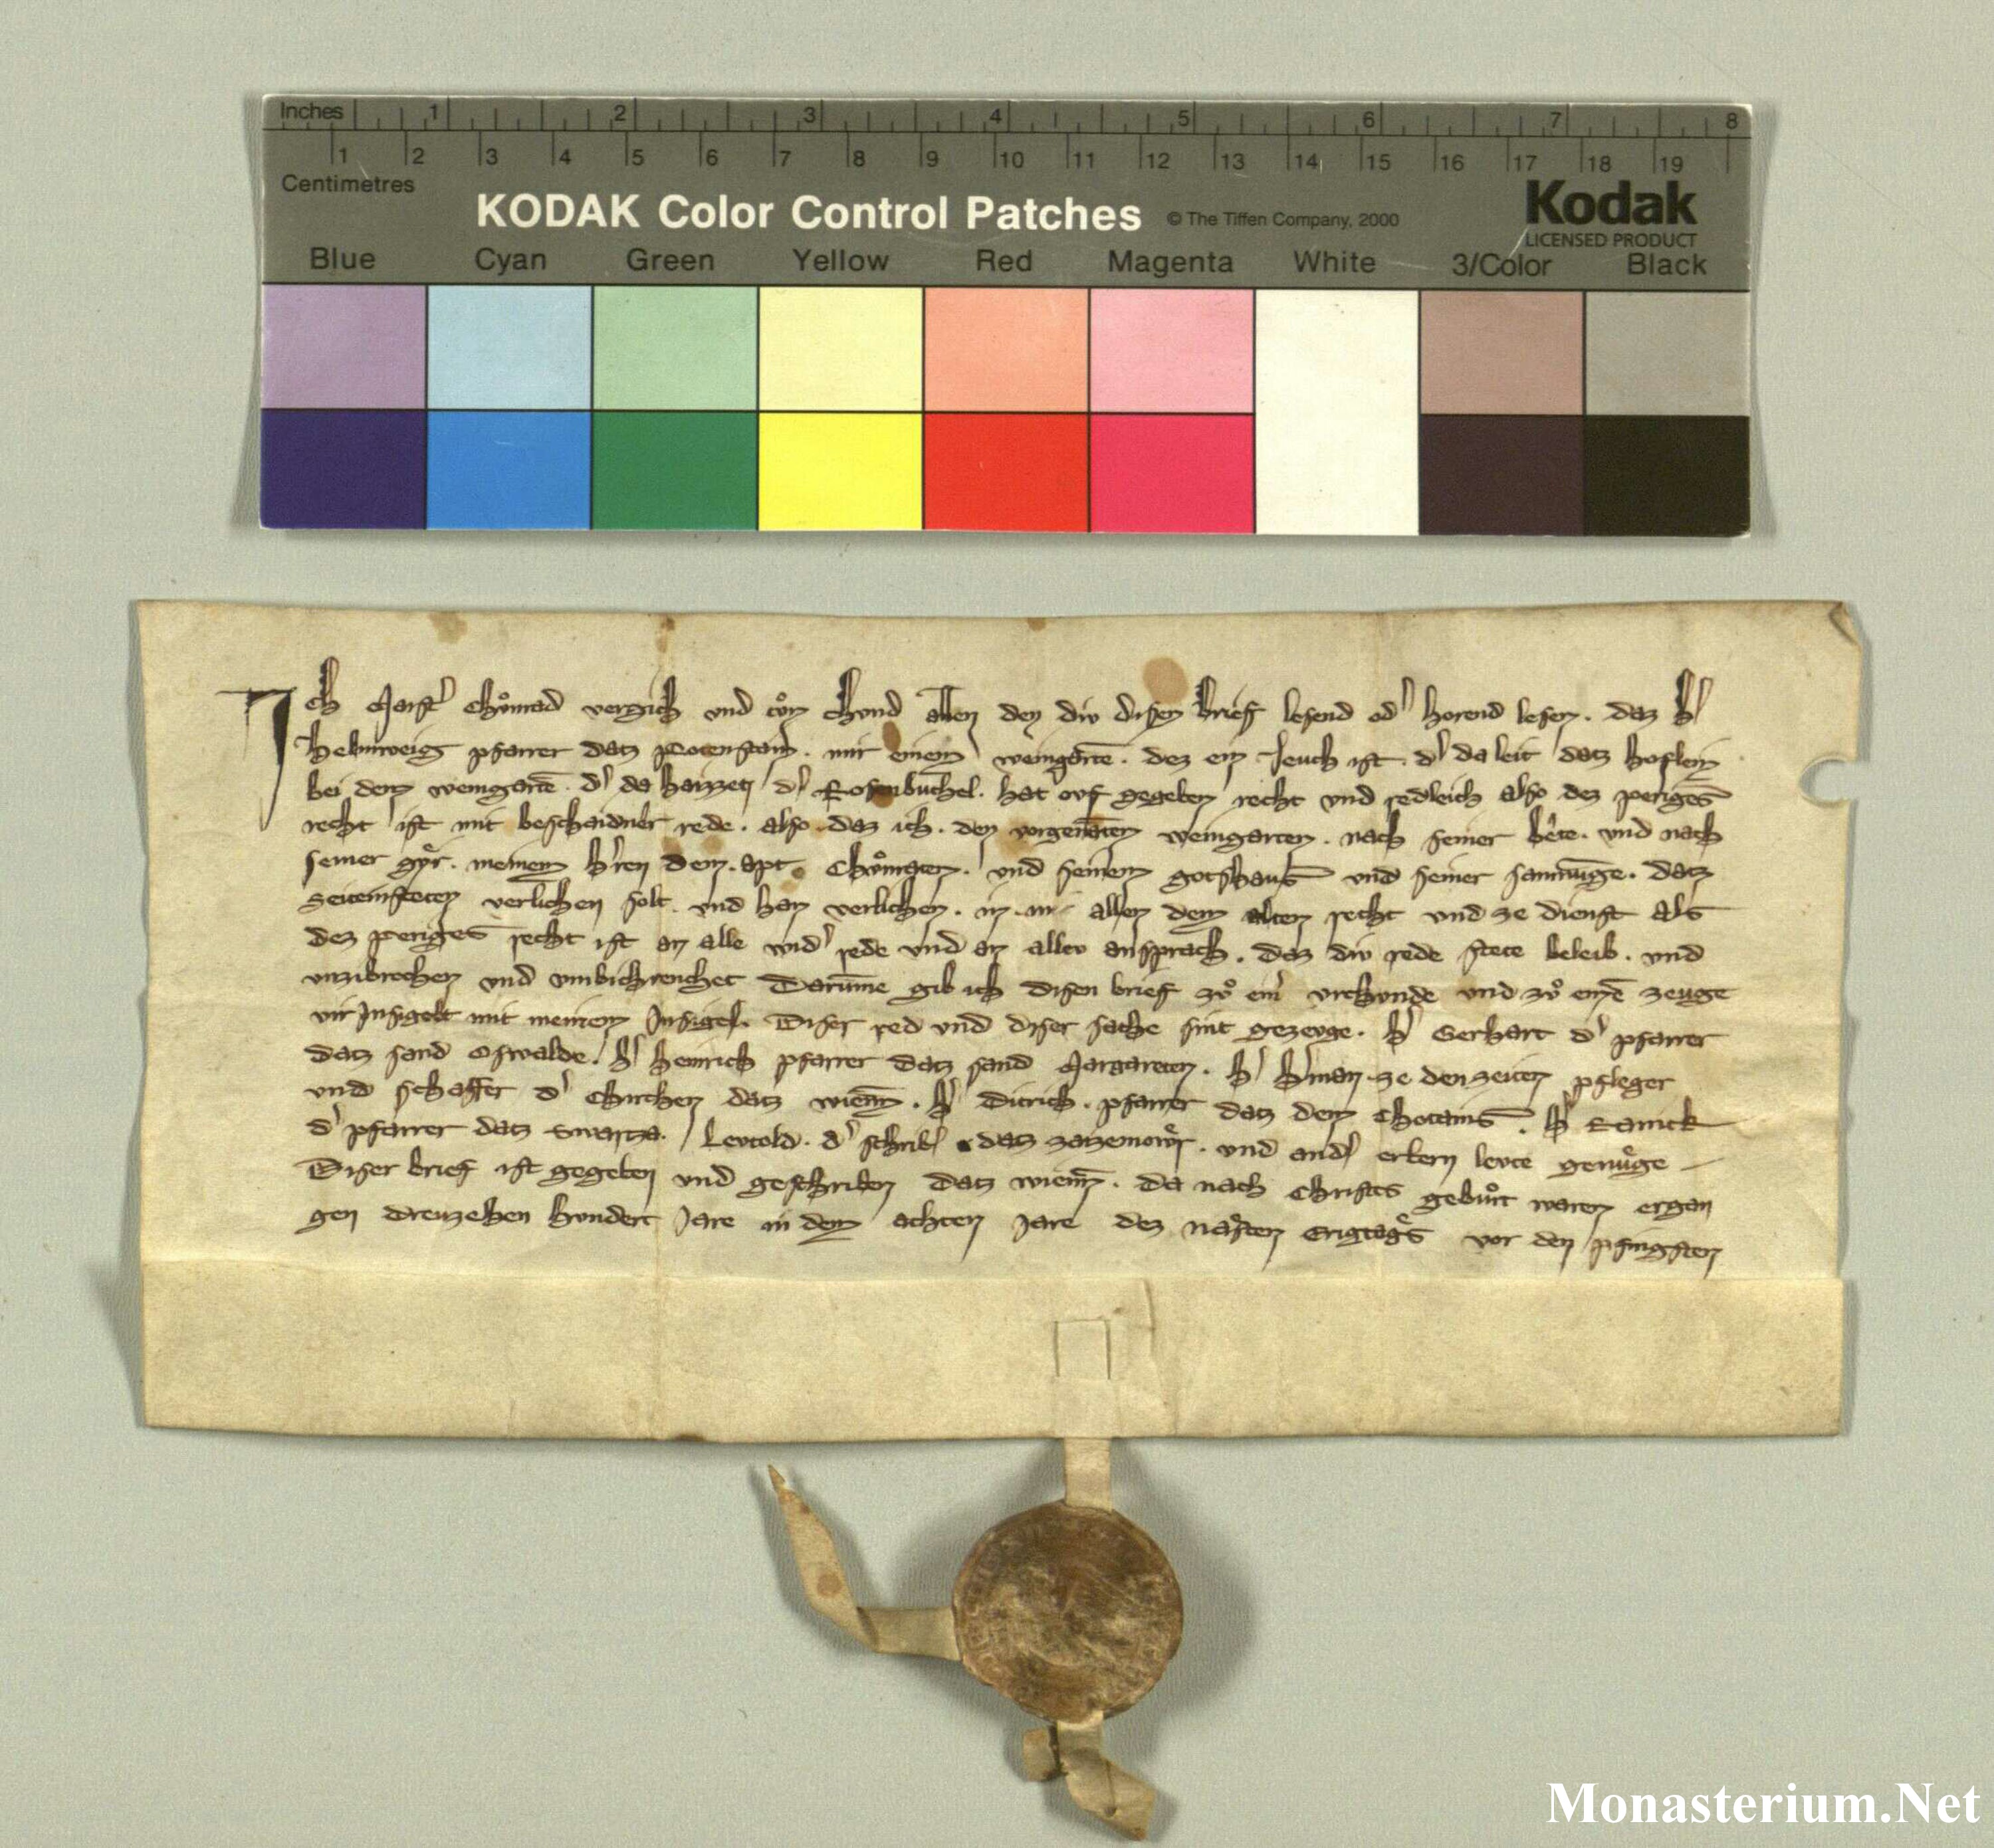 Inches 1 2 3 4 5 6 7 8
1 2 3 4 5 6 7 8 9 10 11 12 13 14 15 16 17 18 19
Centimetres
KODAK Color Control Patches © The Tiffen Company, 2000 Kodak
LICENSED PRODUCT
Blue Cyan Green Yellow Red Magenta White 3/Color Black
Ich Maist' Chůnrad vergich vnd tůn chvnd allen den div disen brief lesend od' horend lesen. daz h'
Helmweig pfarrer datz Potenstain. mir einem weingartē. dez ein Jeuch ist. d' da leit datz hoflein
bei dem weingartē. d' da haizzet d' Rosenbuchel. hat ovf gegeben recht vnd redleich also dez periges
recht ist mit beschaidner rede. also daz ich. den vorgenāten weingarten. nach seiner bete. vnd nach
seiner gir. meinem h'ren dem. apt. Chůnraten. vnd seinem gotshaus vnd seiner samnūge. datz
Seitensteten verlichen solt. vnd han verlichen. in allem dem alten recht vnd ze dienst als
dez periges recht ist an alle wid' rede vnd an allev ansprach. daz div rede stete beleib. vnd
vnzibrochen vnd vmbichrenchet Darūme gib ich disen brief zů eim' vrchvnde vnd zů eim' zeuge
vir Insigelt mit meinem Insigel. Diser red vnd diser sache sint gezevge. h' Gerhart d' pfarrer
datz sand Oswalde. h' Heinrich pfarrer datz sand Margareten. h' h'man ze den zeiten pfleger
vnd schaffer d' chirchen datz wienn. h' Ditrich. pfarrer datz dem Chotains. h' Ranick
d' pfarrer datz Swartza. Levtold. d' schrib' datz zaizemowr. vnd and' erbern levte genůge
Diser brief ist gegeben vnd geschriben datz wienn. Da nach Christes gebůrt waren ergan
gen drevzehen hvndert Jare in dem achten Jare dez nasten Erigtages vor den pfingsten
Monasterium.Net